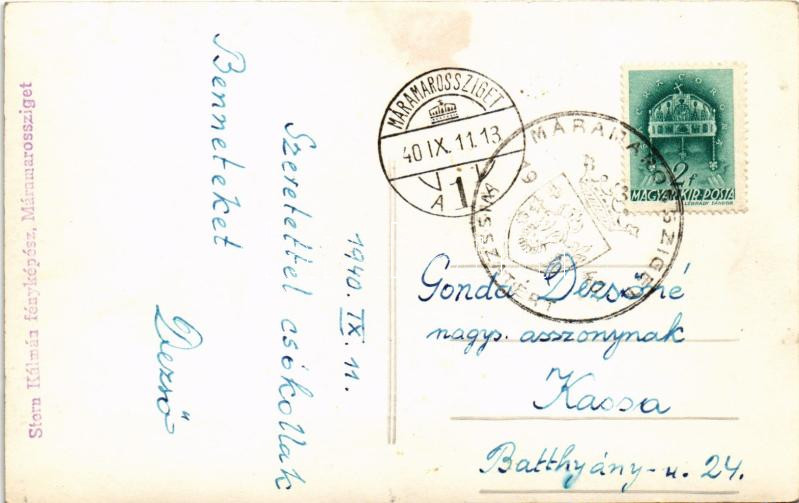 Stern Kálmán fényképész, Máramarossziget
1940. IX. 11.
Szeretettel csókollak
Benneteket
Dezső
MÁRAMAROSSZIGET
40 IX. 11. 13
A 1
MÁRAMAROSSZIGET
VISSZATÉRT
1940
SACRA CORONA
2f
MAGYAR KIR. POSTA
LÉGRÁDY SÁNDOR
Gonda Dezsőné
nagys. asszonynak
Kassa
Batthyány-u. 24.